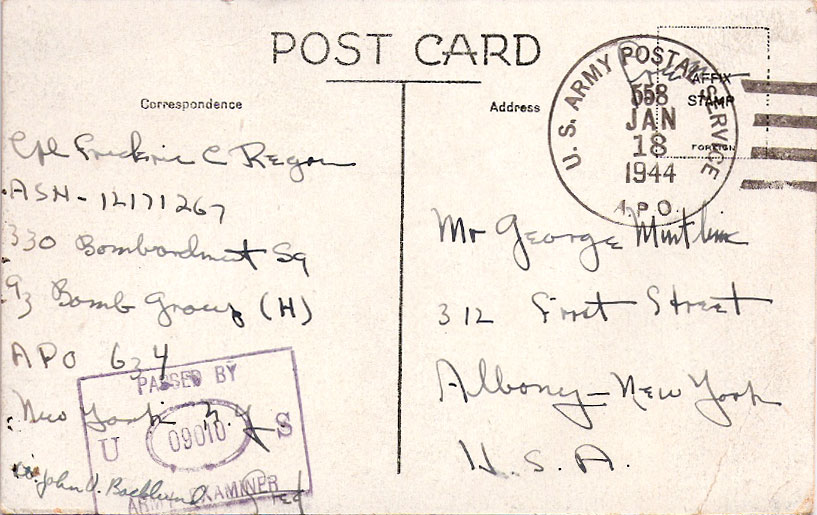 POST CARD
Correspondence
Address
AFFIX
STAMP
FOREIGN
U. S. ARMY POSTAL SERVICE
558
JAN
18
1944
A.P.O.
Cpl Frederic C Regan
ASN - 12171267
330 Bombardment Sq
93 Bomb Group (H)
APO 634
New York N.Y
John V. Backlund
Fred
PASSED BY
U 09010 S
ARMY EXAMINER
Mr George
312 First Street
Albany - New York
U. S. A.